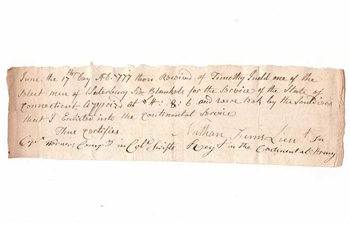 June the 17th Day AD 1777 then Received of Timothy Judd one of the
Select men of Waterbury Six Blankets for the Service of the State of
Connecticut at 8: 6 and each by the Soldiers
that I Enlisted into the continental Service
Thus certifies Nathan Lieut in
Capt Comp y in Col Swifts Regt in the Continental Army